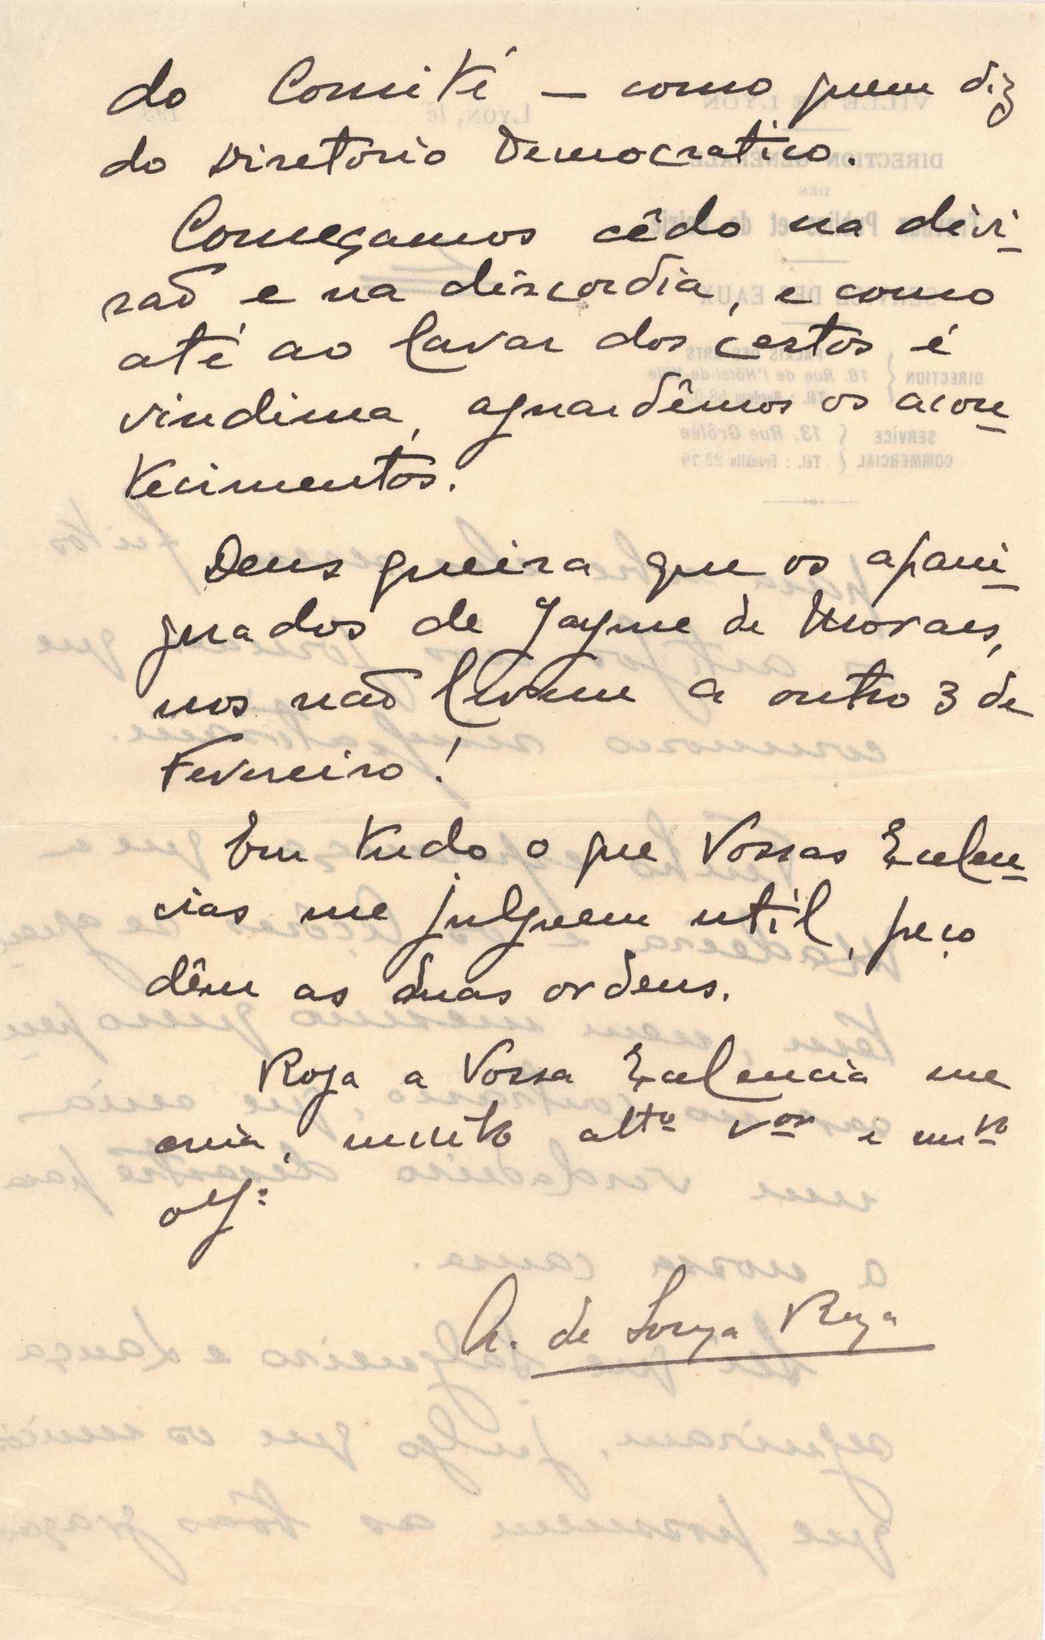 do Comité — como quem diz
do Diretorio Democratico.
Começamos cêdo na divi-
saõ e na discordia, e como
até ao lavar dos cestos é
vindima, aguardêmos os acon-
tecimentos.
Deus queira que os apani-
guados de Jayme de Moraes,
nos naõ levem a outro 3 de
Fevereiro!
Em tudo o que Vossas Excelen-
cias me julguem util, peço
dêm as suas ordens.
Roga a Vossa Excelencia me
creia, muito attº Vor e mtº
obgº
A. de Souza Roza